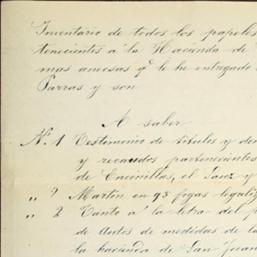 Inventario de todos los papeles
tenecientes a la Hacienda de
mas anecsas q.e le he entregado
Parras y son
A saber
N.o 1 Testimonio de titulos y
y recaudos pertenecientes
de Encinillas, el Sauz y
,, ? Martin en 93 fojas legaliz
,, 2 Tanto a la letra del
de Autos de medidas de la
la hacienda de San Juan